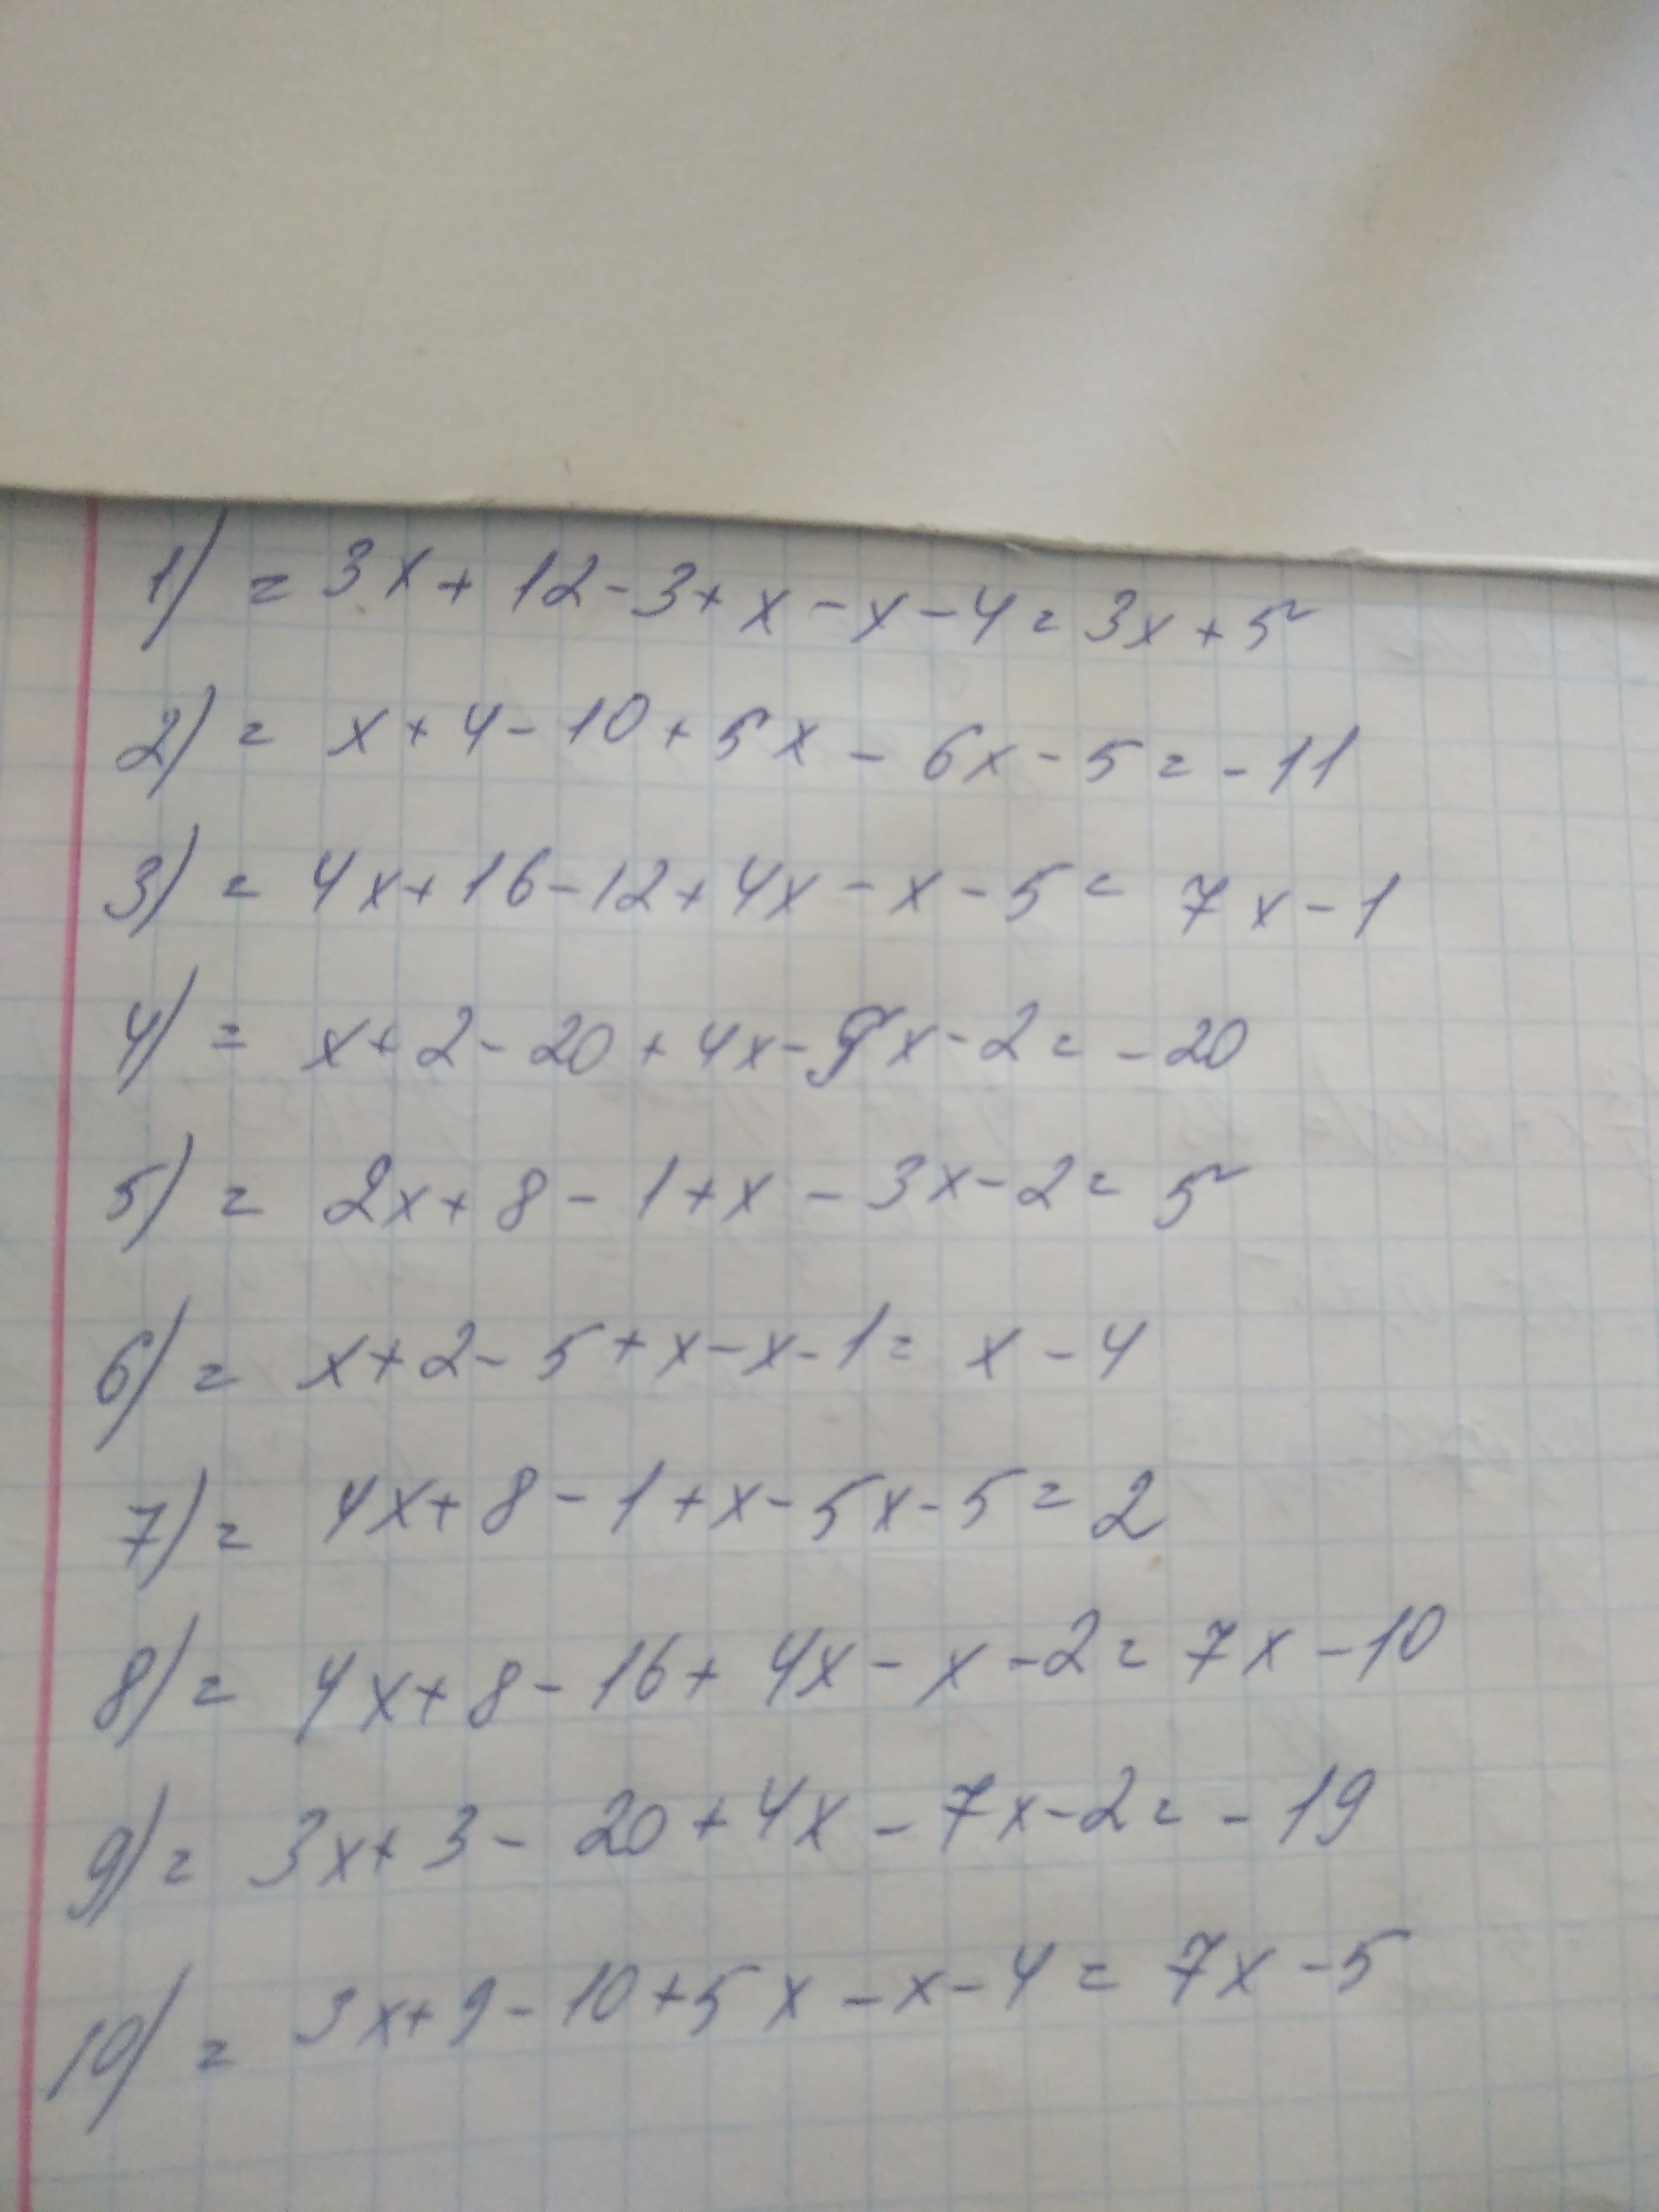 1) = 3x + 12 - 3 + x - x - 4 = 3x + 5
2) = x + 4 - 10 + 5x - 6x - 5 = - 11
3) = 4x + 16 - 12 + 4x - x - 5 = 7x - 1
4) = x + 2 - 20 + 4x - x - 2 = - 20
5) = 2x + 8 - 1 + x - 3x - 2 = 5
6) = x + 2 - 5 + x - x - 1 = x - 4
7) = 4x + 8 - 1 + x - 5x - 5 = 2
8) = 4x + 8 - 16 + 4x - x - 2 = 7x - 10
9) = 3x + 3 - 20 + 4x - 7x - 2 = - 19
10) = 3x + 9 - 10 + 5x - x - 4 = 7x - 5